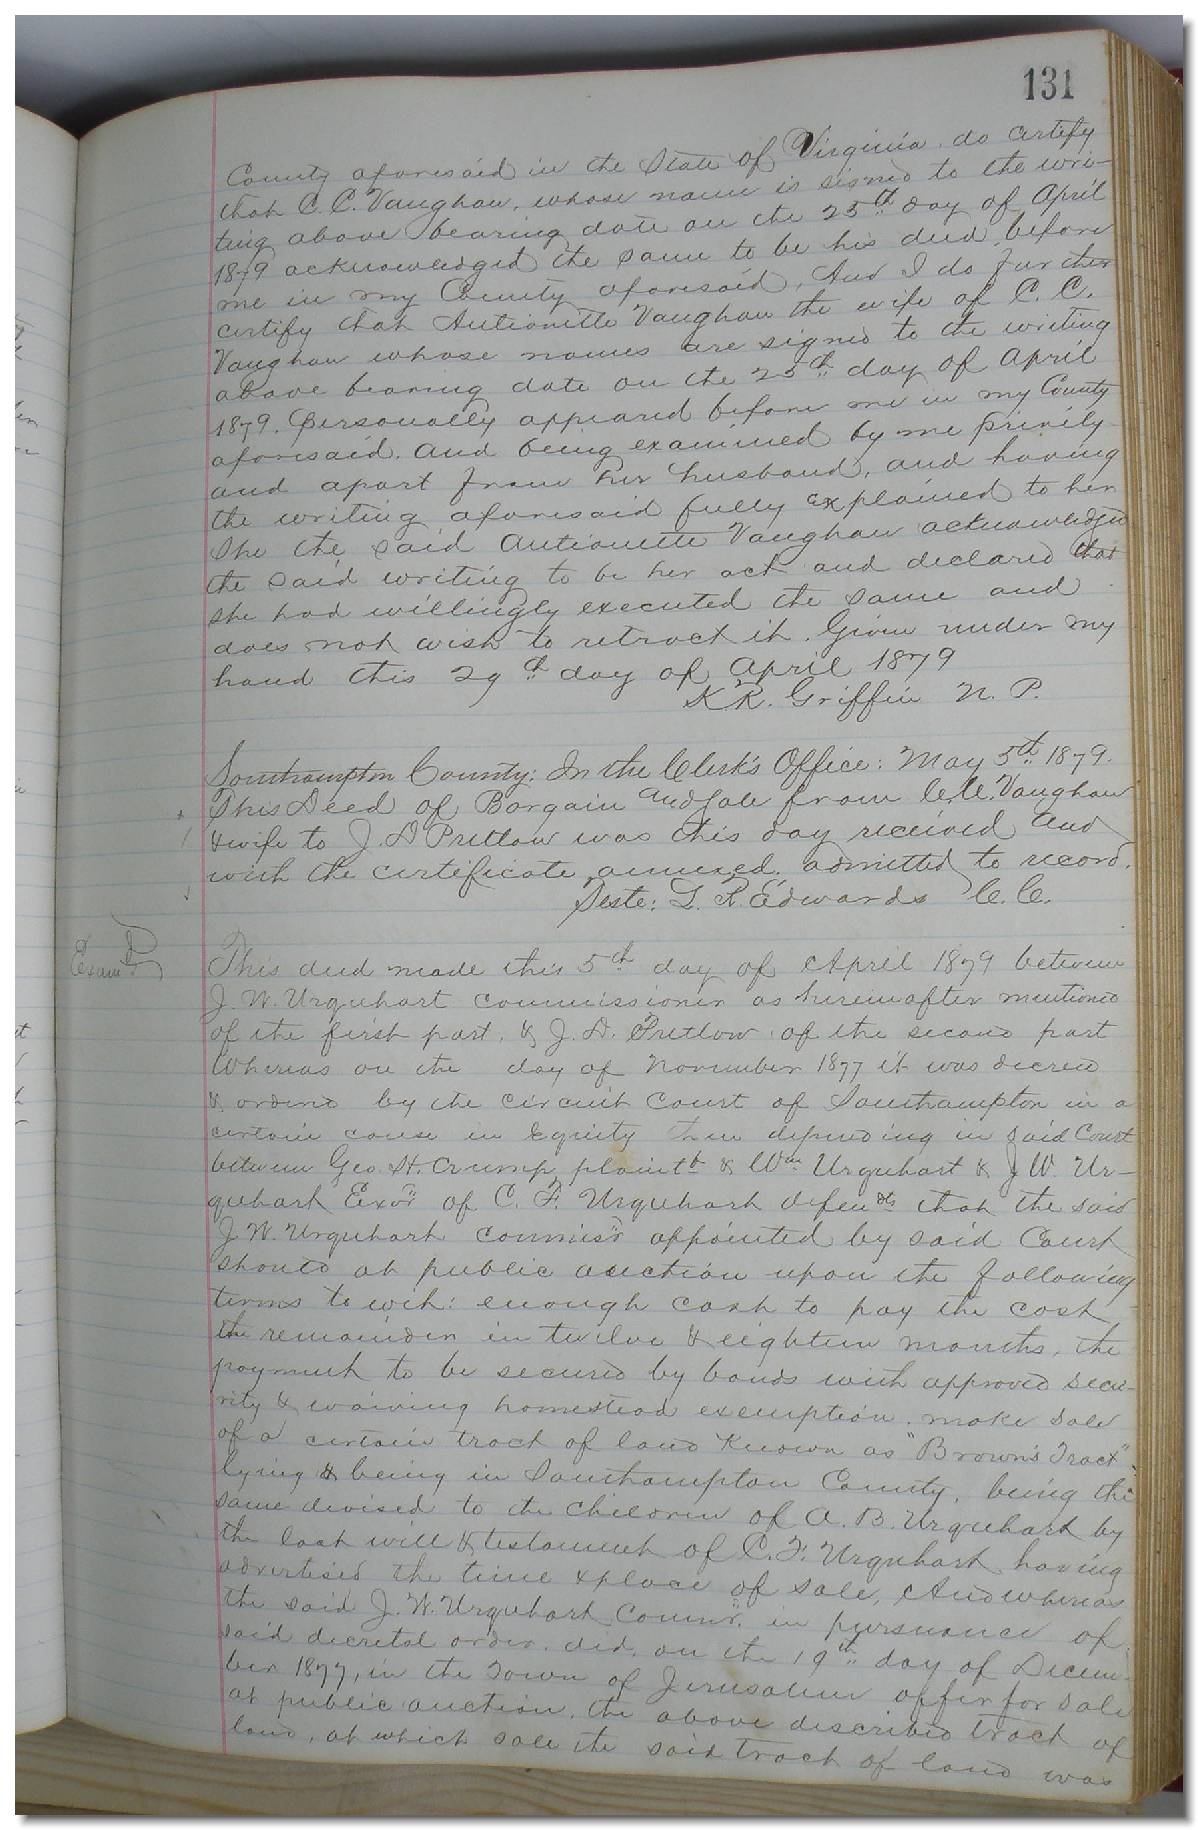 131
County aforesaid in the State of Virginia do certify
that C. C. Vaughan, whose name is signed to the wri-
ting above bearing date on the 25th day of April
1879 acknowledged the same to be his deed, before
me in my County aforesaid, And I do further
certify that Antionette Vaughan the wife of C. C.
Vaughan whose names are signed to the writing
above bearing date on the 25th day of April
1879. personally appeared before me in my County
aforesaid. and being examined by me privily
and apart from her husband, and having
the writing aforesaid fully explained to her
She the said Antionette Vaughan acknowledged
the said writing to be her act and declared that
she had willingly executed the same and
does not wish to retract it. Given under my
hand this 29th day of April 1879
K. R. Griffin N. P.
Southampton County: In the Clerk's Office: May 5th 1879.
This Deed of Bargain and Sale from C. C. Vaughan
& wife to J. D. Pretlow was this day received and
with the certificate annexed, admitted to record.
Teste: L. R. Edwards C. C.
Examd
This deed made this 5th day of April 1879 between
J. W. Urquhart commissioner as hereinafter mentioned
of the first part, & J. D. Pretlow of the second part
Whereas on the day of November 1877 it was decreed
& ordered by the circuit court of Southampton in a
certain cause in Equity then depending in said Court
between Geo. H. Crump plaintt & Wm Urquhart & J W. Ur-
quhart Exors of C. F. Urquhart defendts that the said
J. W. Urquhart commisr appointed by said Court
should at public auction upon the following
terms to wit: enough cash to pay the cost
the remainder in twelve & eighteen months, the
payment to be secured by bonds with approved secu-
rity & waiving homestead exemption. make sale
of a certain tract of land known as "Brown's Tract"
lying & being in Southampton County, being the
same devised to the children of A. B. Urquhart by
the last will & testament of C. F. Urquhart having
advertised the time & place of sale, And whereas
the said J. W. Urquhart Commr. in pursuance of
said decretal order, did, on the 19th day of Decem-
ber 1877, in the Town of Jerusalem offer for sale
at public auction, the above described tract of
land, at which sale the said tract of land was